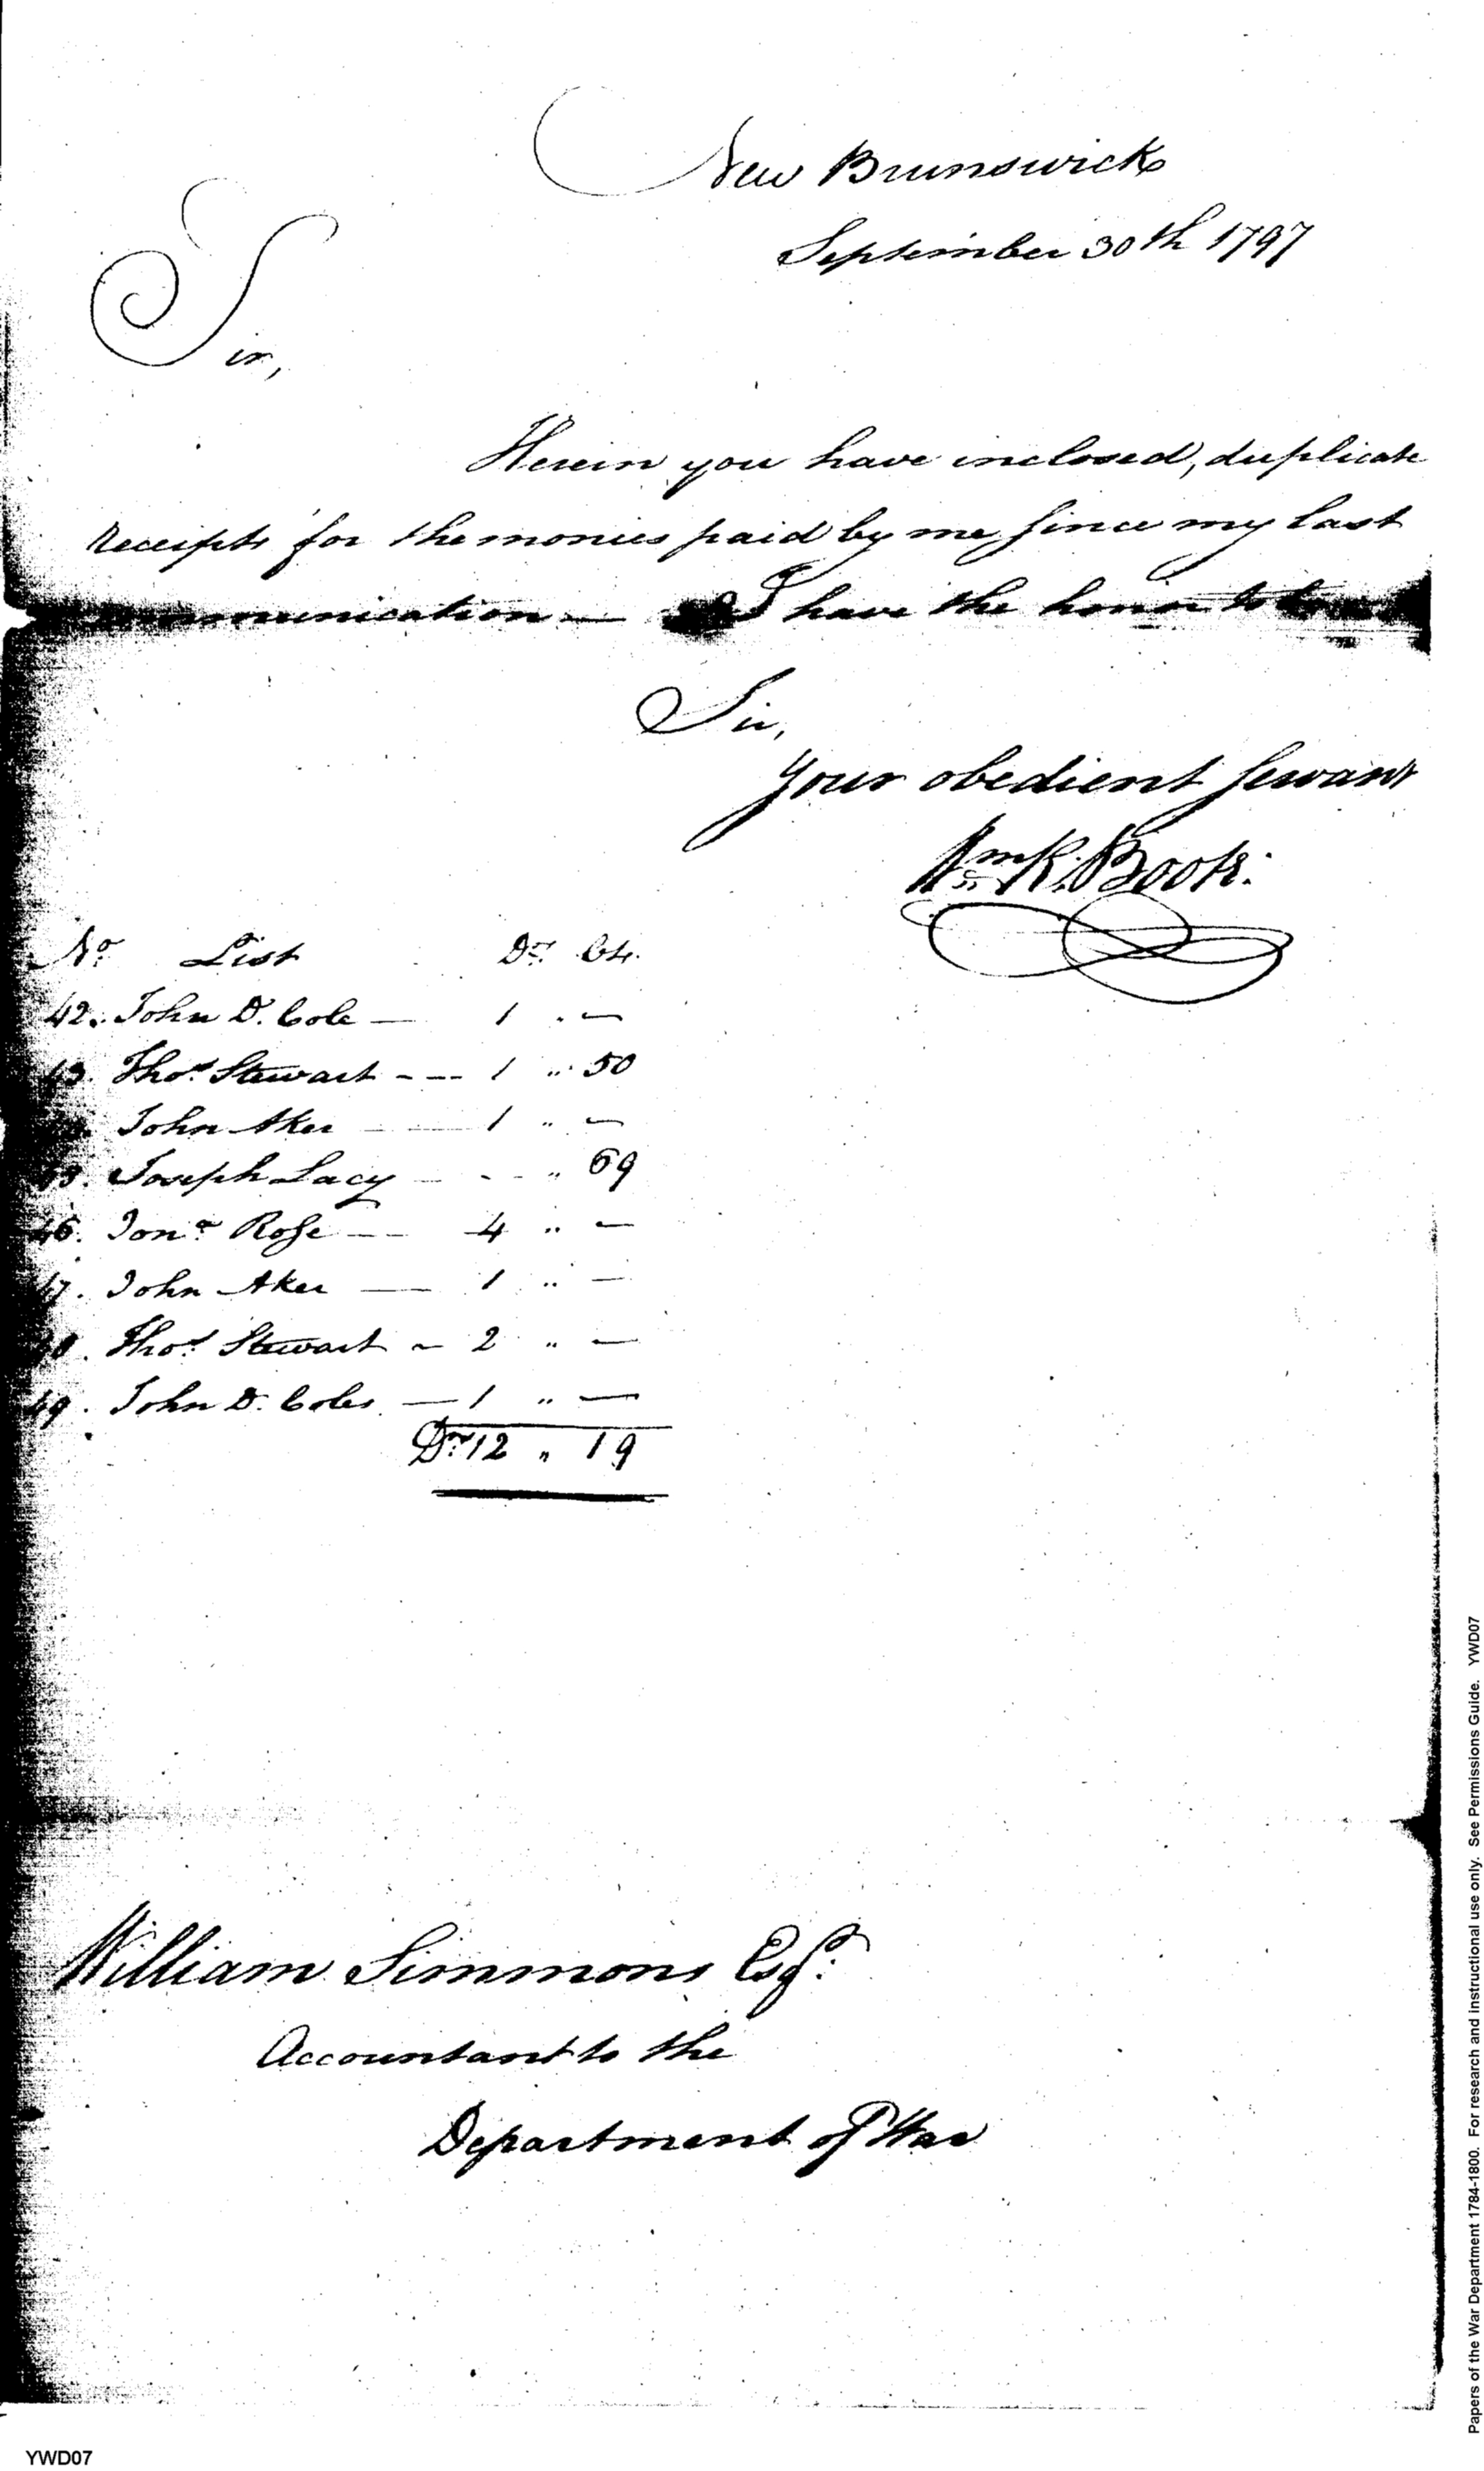 New Brunswick
September 30th 1797
Sir,
Herein you have inclosed, duplicate
receipts for the monies paid by me, since my last
communication — I have the honor to be
Sir,
Your obedient servant
Wm R. Book:
No. List Drs. Cts.
42. John D. Cole — 1 " —
43. Thos. Stewart - — 1 " 50
John Aker — 1 " —
Joseph Lacy — - - " 69
46. Jona. Rose — 4 " —
47. John Aker — 1 " —
48. Thos. Stewart ~ 2 " —
49. John D. Coles — 1 " —
Drs 12 " 19
William Simmons Esqr.
Accountant to the
Department of War
YWD07
Papers of the War Department 1784-1800. For research and instructional use only. See Permissions Guide. YWD07